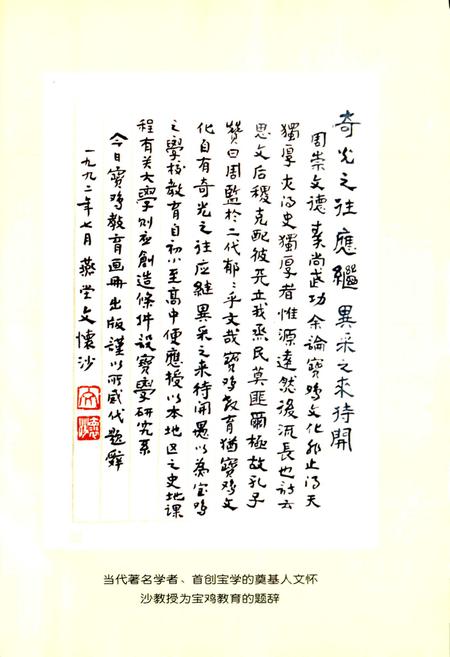 奇光之往應繼 異采之來待開
周崇文德秦尚武功余論寶鸡文化非止得天
獨厚夾得史獨厚者惟源遠然後流長也诗云
思文后稷克配彼天立我烝民莫匪爾極故孔子
贊曰周監於二代郁〻乎文哉寶鸡教育猶寶鸡文
化自有奇光之往应継異采之来待開愚以為宝鸡
之學校教育自初小至高中便應授以本地区之史地课
程有关大學則应創造條件設寶學研究系
今日寶鸡教育画册出版謹以所感代題辞
一九九二年七月 燕堂文懷沙
文
懷沙
当代著名学者、首创宝学的奠基人文怀
沙教授为宝鸡教育的题辞